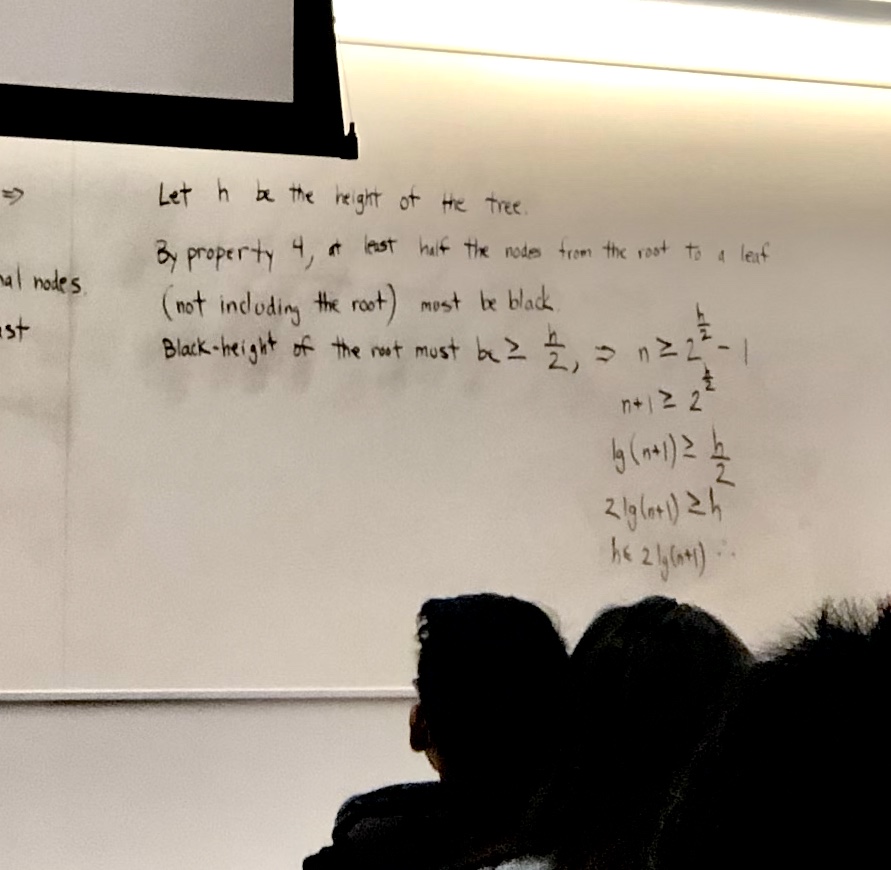 ⇒
nal nodes.
ast
Let h be the height of the tree.
By property 4, at least half the nodes from the root to a leaf
(not including the root) must be black.
Black-height of the root must be ≥ h/2, ⇒ n ≥ 2^(h/2) - 1
n+1 ≥ 2^(h/2)
lg(n+1) ≥ h/2
2lg(n+1) ≥ h
h ≤ 2lg(n+1) ∴